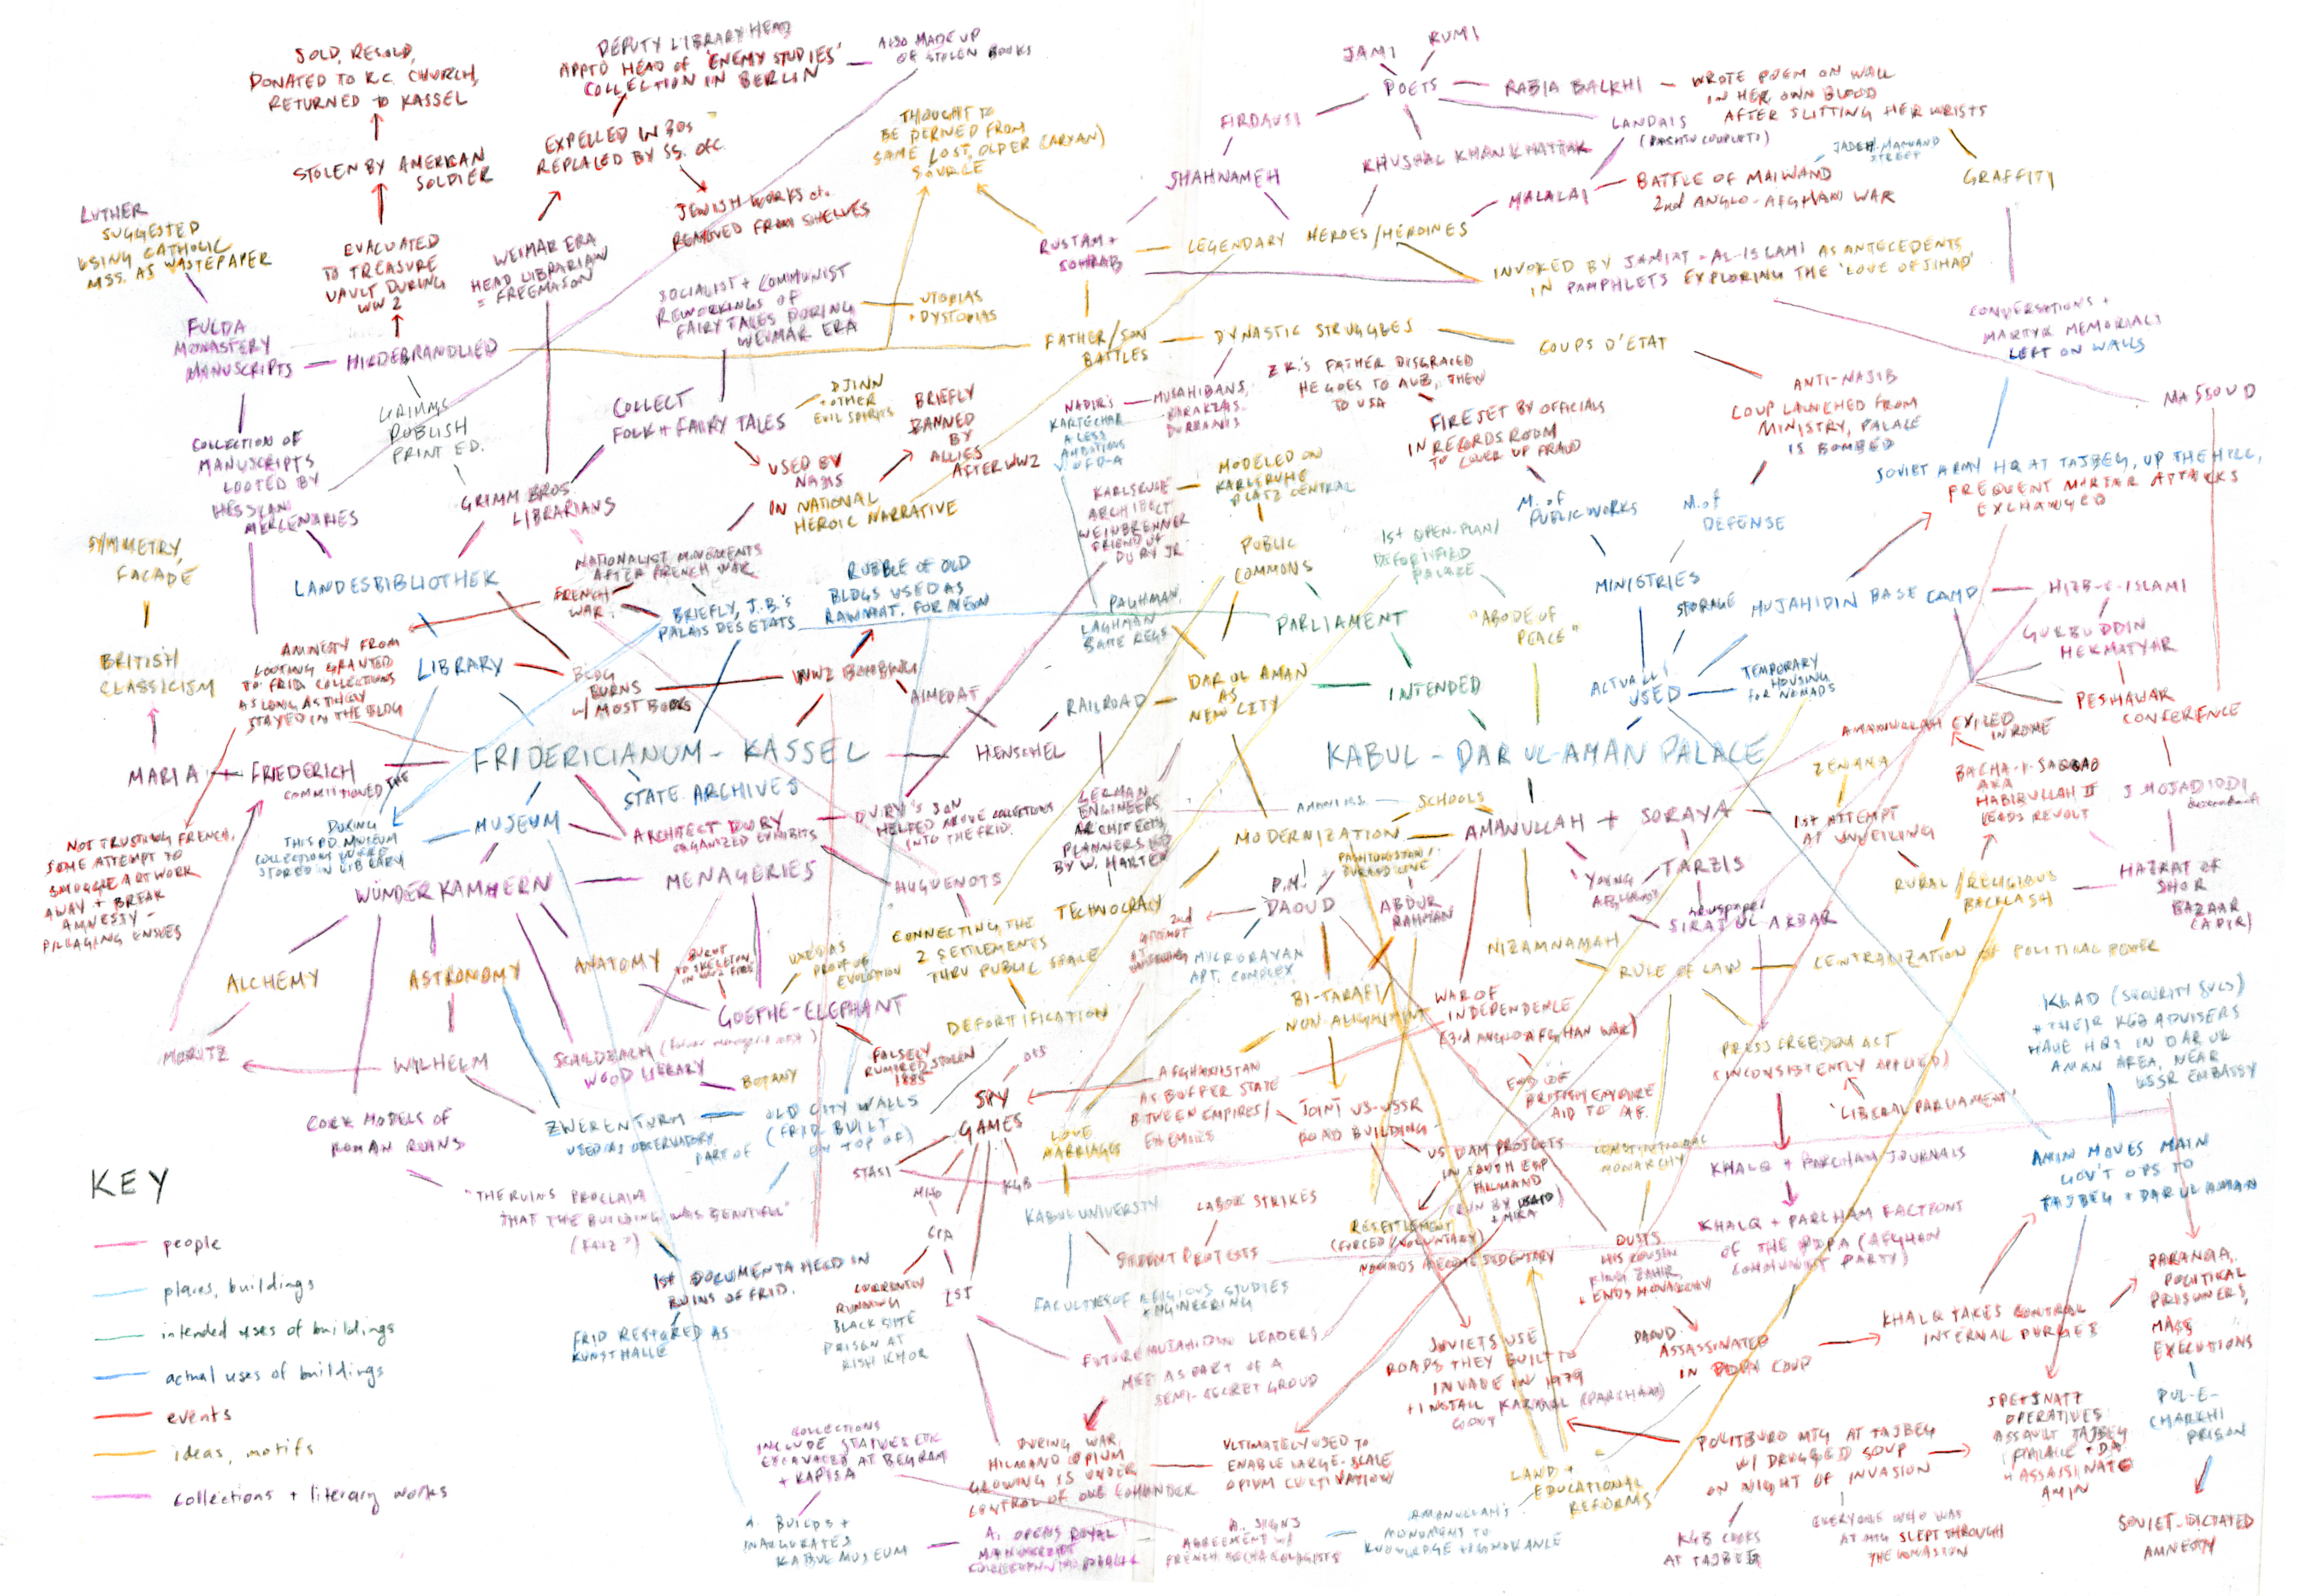 SOLD, RESOLD,
DONATED TO R.C. CHURCH,
RETURNED TO KASSEL
STOLEN BY AMERICAN
SOLDIER
EVACUATED
TO TREASURE
VAULT DURING
WW2
DEPUTY LIBRARY HEAD
APPTD HEAD OF 'ENEMY STUDIES'
COLLECTION IN BERLIN
ALSO MADE UP
OF STOLEN BOOKS
EXPELLED IN 30s
REPLACED BY SS. OFC.
JEWISH WORKS etc.
REMOVED FROM SHELVES
WEIMAR ERA
HEAD LIBRARIAN
= FREEMASON
LUTHER
SUGGESTED
USING CATHOLIC
MSS. AS WASTEPAPER
FULDA
MONASTERY
MANUSCRIPTS
HILDEBRANDLIED
GRIMMS
PUBLISH
PRINT ED.
THOUGHT TO
BE DERIVED FROM
SAME LOST, OLDER (ARYAN)
SOURCE
SOCIALIST + COMMUNIST
REWORKINGS OF
FAIRYTALES DURING
WEIMAR ERA
UTOPIAS
+ DYSTOPIAS
COLLECT
FOLK + FAIRY TALES
DJINN
+ OTHER
EVIL SPIRITS
BRIEFLY
BANNED
BY
ALLIES
AFTER WW2
USED BY
NAZIS
IN NATIONAL
HEROIC NARRATIVE
COLLECTION OF
MANUSCRIPTS
LOOTED BY
HESSIAN
MERCENARIES
GRIMM BROS.
LIBRARIANS
JAMI
RUMI
POETS
RABIA BALKHI
WROTE POEM ON WALL
IN HER OWN BLOOD
AFTER SLITTING HER WRISTS
FIRDAUSI
LANDAIS
(PASHTU COUPLETS)
KHUSHAL KHAN KHATTAK
SHAHNAMEH
MALALAI
BATTLE OF MAIWAND
2nd ANGLO-AFGHAN WAR
JADEH MAIWAND
STREET
GRAFFITI
RUSTAM +
SOHRAB
LEGENDARY HEROES/HEROINES
INVOKED BY JAMIAT-AL-ISLAMI AS ANTECEDENTS
IN PAMPHLETS EXPLORING THE 'LOVE OF JIHAD'
CONVERSATIONS +
MARTYR MEMORIALS
LEFT ON WALLS
FATHER/SON
BATTLES
DYNASTIC STRUGGLES
COUPS D'ETAT
Z.K.'S FATHER DISGRACED
HE GOES TO AUB, THEN
TO USA
ANTI-NAJIB
COUP LAUNCHED FROM
MINISTRY, PALACE
IS BOMBED
MASSOUD
NADIR'S
KARTECHAR
A LESS
AMBITIOUS
V. OF D-A
MUSAHIBANS,
BARAKZAIS,
DURRANIS
FIRE SET BY OFFICIALS
IN RECORDS ROOM
TO COVER UP FRAUD
SOVIET ARMY HQ AT TAJBEG, UP THE HILL,
FREQUENT MORTAR ATTACKS
EXCHANGED
MODELED ON
KARLSRUHE
PLATZ CENTRAL
KARLSRUHE
ARCHITECT
WEINBRENNER
FRIEND OF
DU RY JR
M. of
PUBLIC WORKS
M. of
DEFENSE
SYMMETRY,
FACADE
BRITISH
CLASSICISM
LANDESBIBLIOTHEK
NATIONALIST MOVEMENTS
AFTER FRENCH WAR
FRENCH
WAR
BRIEFLY, J.B.'s
PALAIS DES ETATS
RUBBLE OF OLD
BLDGS USED AS
RAW MAT. FOR NEW
PUBLIC
COMMONS
1st OPEN-PLAN/
DEFORTIFIED
PALACE
"ABODE OF
PEACE"
MINISTRIES
STORAGE
MUJAHIDIN BASE CAMP
HIZB-E-ISLAMI
GULBUDDIN
HEKMATYAR
PAGHMAN
LAGHMAN
SAME REGS
PARLIAMENT
AMNESTY FROM
LOOTING GRANTED
TO FRID COLLECTIONS
AS LONG AS THEY
STAYED IN THE BLDG
LIBRARY
BLDG
BURNS
w/ MOST BOOKS
WW2 BOMBING
AIMED AT
RAILROAD
DAR UL AMAN
AS
NEW CITY
INTENDED
ACTUALLY
USED
TEMPORARY
HOUSING
for NOMADS
PESHAWAR
CONFERENCE
AMANULLAH EXILED
IN ROME
FRIDERICIANUM - KASSEL
HENSCHEL
KABUL - DAR UL-AMAN PALACE
MARIA + FRIEDERICH
COMMISSIONED THE
STATE ARCHIVES
ZENANA
BACHA-I-SAQQAO
AKA
HABIBULLAH II
LEADS REVOLT
J. MOJADIDDI
descendant
NOT TRUSTING FRENCH,
SOME ATTEMPT TO
SMUGGLE ARTWORK
AWAY + BREAK
AMNESTY -
PILLAGING ENSUES
DURING
THIS PD. MUSEUM
COLLECTIONS WERE
STORED IN LIBRARY
MUSEUM
ARCHITECT DU RY
ORGANIZED EXHIBITS
DU RY'S SON
HELPED MOVE COLLECTIONS
INTO THE FRID.
GERMAN
ENGINEERS,
ARCHITECTS,
PLANNERS LED
BY W. HARTEN
SCHOOLS
MODERNIZATION
AMANULLAH + SORAYA
1st ATTEMPT
AT UNVEILING
WUNDERKAMMERN
MENAGERIES
HUGUENOTS
PASHTUNISTAN/
DURAND LINE
TARZIS
YOUNG
AFGHANS
RURAL/RELIGIOUS
BACKLASH
HAZRAT OF
SHOR
BAZAAR
(QADIR)
TECHNOCRACY
P.M.
DAOUD
ABDUR
RAHMAN
newspaper
SIRAJ UL AKBAR
2nd
ATTEMPT
AT
UNVEILING
MICRORAYAN
APT. COMPLEX
NIZAMNAMAH
RULE OF LAW
CENTRALIZATION OF POLITICAL POWER
CONNECTING THE
2 SETTLEMENTS
THRU PUBLIC SPACE
ALCHEMY
ASTRONOMY
ANATOMY
BURNT
TO SKELETON
IN WW2 FIRE
USED AS
PROOF OF
EVOLUTION
GOETHE-ELEPHANT
DEFORTIFICATION
BI-TARAFI/
NON-ALIGNMENT
WAR OF
INDEPENDENCE
(3rd ANGLO-AFGHAN WAR)
KHAD (SECURITY SVCS)
+ THEIR KGB ADVISERS
HAVE HQS IN DAR UL
AMAN AREA, NEAR
USSR EMBASSY
PRESS FREEDOM ACT
(INCONSISTENTLY APPLIED)
"LIBERAL PARLIAMENT"
MORITZ
WILHELM
SCHILDBACH
WOOD LIBRARY
BOTANY
FALSELY
RUMORED STOLEN
1885
OSS
SPY
GAMES
AFGHANISTAN
AS BUFFER STATE
BTWEEN EMPIRES/
ENEMIES
JOINT US-USSR
ROAD BUILDING
END OF
BRITISH EMPIRE
AID TO AF.
CORK MODELS OF
ROMAN RUINS
ZWERENTURM
USED AS OBSERVATORY
PART OF
OLD CITY WALLS
(FRID. BUILT
ON TOP OF)
LOVE
MARRIAGES
STASI
MI6
KGB
CIA
ISI
US DAM PROJECTS
HELMAND
CONSTITUTIONAL
MONARCHY
KHALQ + PARCHAM JOURNALS
AMIN MOVES MAIN
GOV'T OPS TO
TAJBEG + DAR UL AMAN
KEY
people
places, buildings
intended uses of buildings
actual uses of buildings
events
ideas, motifs
collections + literary works
"THE RUINS PROCLAIM
THAT THE BUILDING WAS BEAUTIFUL"
KABUL UNIVERSITY
LABOR STRIKES
STUDENT PROTESTS
RESETTLEMENT
(FORCED/VOLUNTARY)
NOMADS BECOME SEDENTARY
OUSTS
HIS COUSIN
KING ZAHIR,
+ ENDS MONARCHY
KHALQ + PARCHAM FACTIONS
OF THE PDPA (AFGHAN
COMMUNIST PARTY)
1st DOCUMENTA HELD IN
RUINS OF FRID.
FRID RESTORED AS
KUNSTHALLE
CURRENTLY
RUNNING
BLACK SITE
PRISON AT
RISH KHOR
FACULTIES OF RELIGIOUS STUDIES
+ ENGINEERING
FUTURE MUJAHIDIN LEADERS
MEET AS PART OF A
SEMI-SECRET GROUP
SOVIETS USE
ROADS THEY BUILT TO
INVADE IN 1979
+ INSTALL KARMAL (PARCHAM)
GOVT
DAOUD
ASSASSINATED
IN PDPA COUP
KHALQ TAKES CONTROL
INTERNAL PURGES
PARANOIA,
POLITICAL
PRISONERS,
MASS
EXECUTIONS
PUL-E-
CHARKHI
PRISON
SOVIET-DICTATED
AMNESTY
COLLECTIONS
INCLUDE STATUES ETC
EXCAVATED AT BEGRAM
+ KAPISA
DURING WAR,
HILMAND OPIUM
GROWING IS UNDER
CONTROL OF ONE COMMANDER
ULTIMATELY USED TO
ENABLE LARGE-SCALE
OPIUM CULTIVATION
LAND +
EDUCATIONAL
REFORMS
POLITBURO MTG AT TAJBEG
W/ DRUGGED SOUP
ON NIGHT OF INVASION
SPETSNATZ
OPERATIVES
ASSAULT TAJBEG
PALACE + DA
+ ASSASSINATE
AMIN
A. BUILDS +
INAUGURATES
KABUL MUSEUM
A. OPENS ROYAL
MANUSCRIPT
A. SIGNS
AGREEMENT W/
FRENCH ARCHAEOLOGISTS
AMANULLAH'S
MONUMENT TO
KNOWLEDGE + IGNORANCE
KGB COOKS
AT TAJBEG
EVERYONE WHO WAS
AT MTG SLEPT THROUGH
THE INVASION